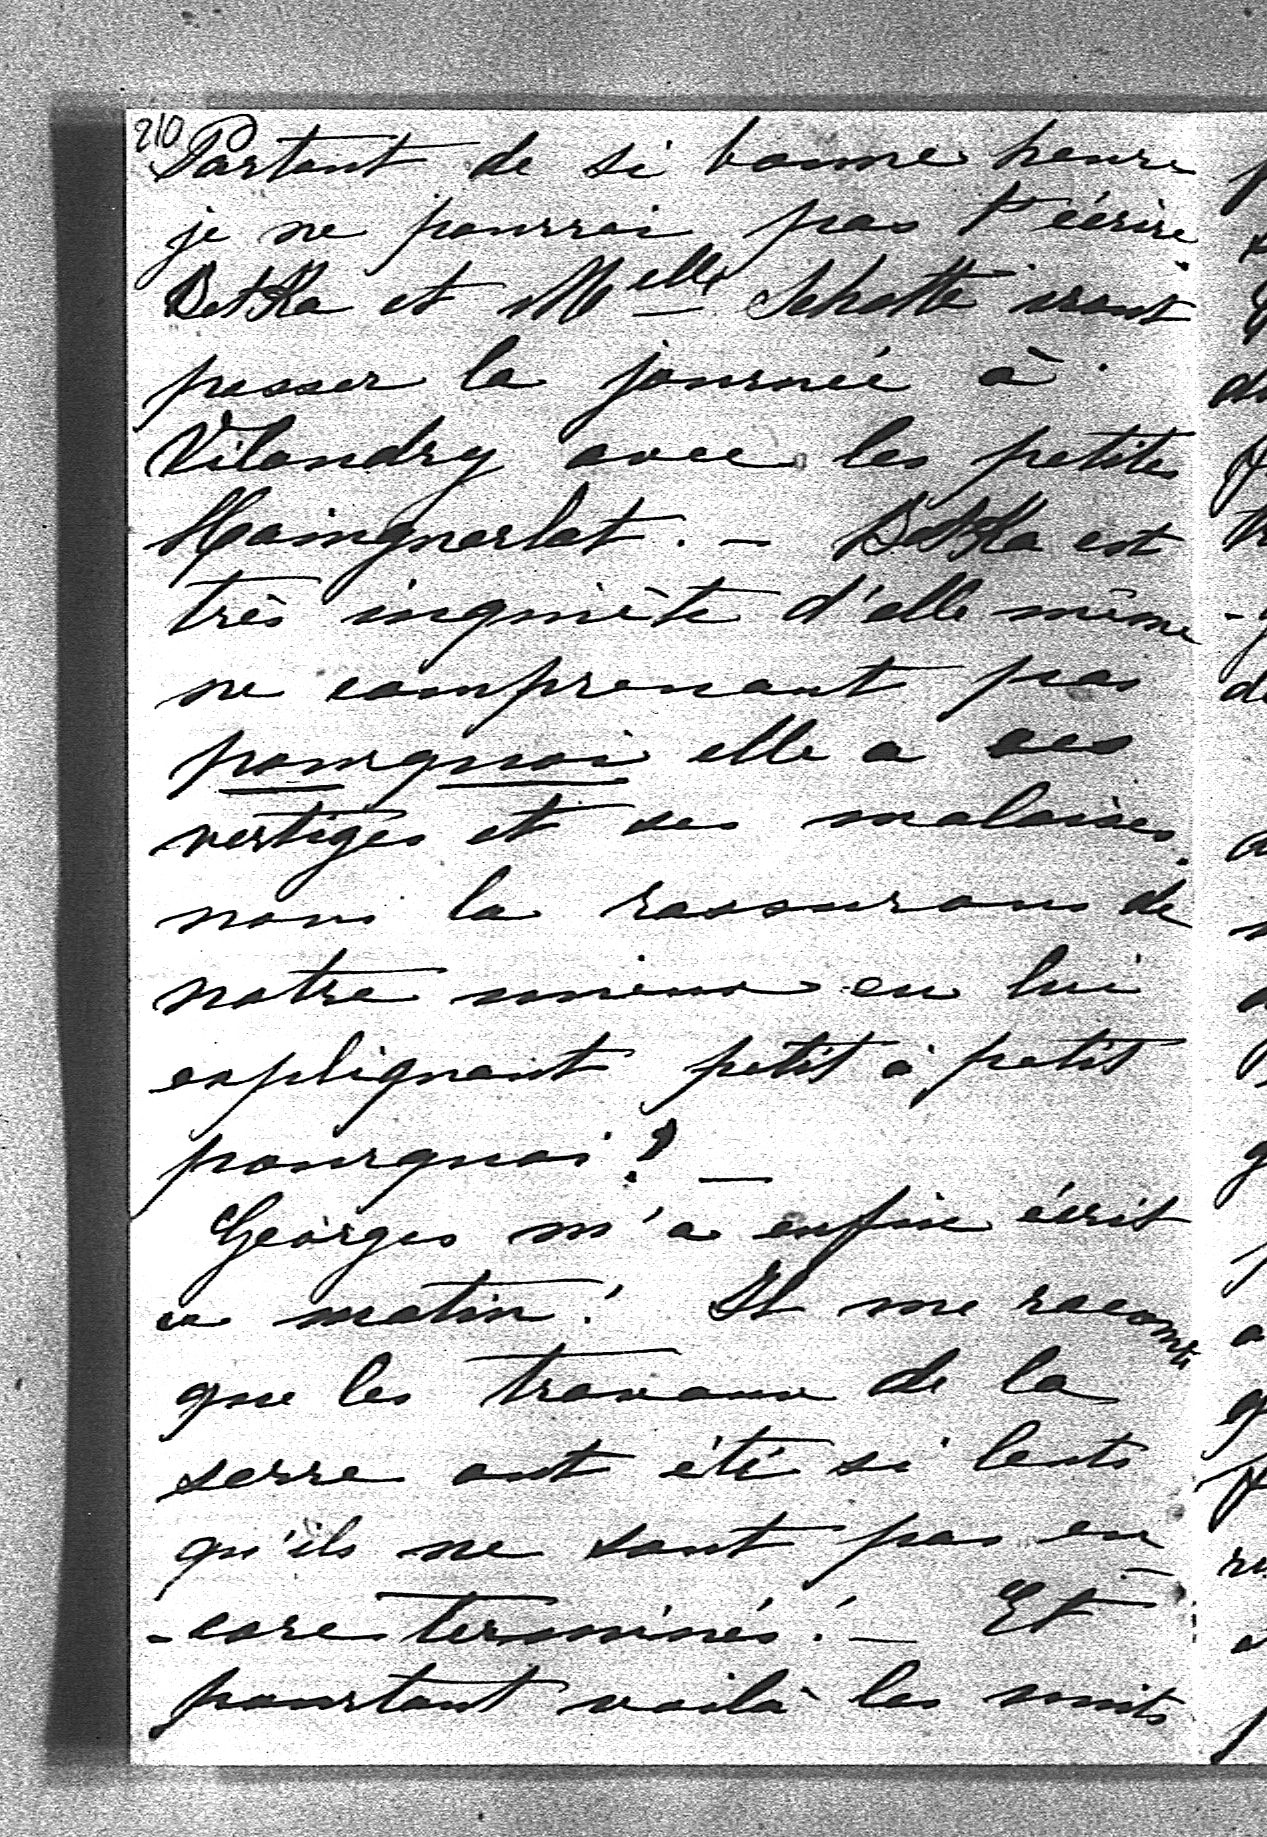 210
Partant de si bonne heure
je ne pourrai pas t'écrire.
Betka et Melle Schatte iront
passer la journée à
Vilandry avec les petites
Maingnerlat. — Betka est
très inquiète d'elle même
ne comprenant pas
pourquoi elle a ces
vertiges et ces malaises.
nous la rassurons de
notre mieux en lui
expliquant petit à petit
pourquoi? —
Georges m'a enfin écrit
ce matin! Il me raconte
que les travaux de la
serre ont été si lents
qu'ils ne sont pas en-
-core terminés! — Et
pourtant voilà les nuits